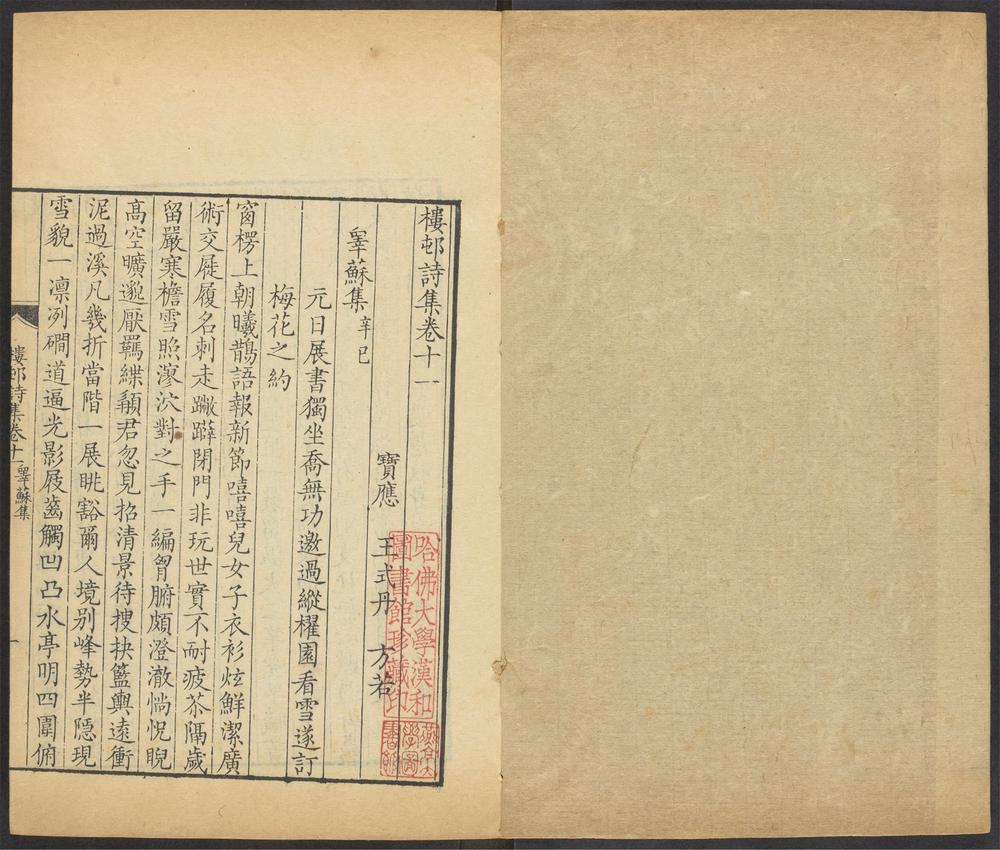 樓邨詩集卷十一
寶應 王式丹 方若
睾蘇集 辛巳
元日展書獨坐喬無功邀過縱櫂園看雪遂訂
梅花之約
窗楞上朝曦鵲語報新節嘻嘻兒女子衣衫炫鮮潔廣
術交屣履名刺走蹴躃閉門非玩世實不耐疲苶隔歲
留嚴寒檐雪照漻泬對之手一編胷腑頗澄澈惝怳睨
高空曠邈厭羈緤顓君忽見招清景待搜抉籃輿遠衝
泥過溪凡幾折當階一展眺豁爾人境别峰勢半隱現
雪貌一凛冽磵道逼光影屐齒觸凹凸水亭明四圍俯
樓邨詩集卷十一 睾蘇集
一
哈佛大學漢和
圖書館珍藏印